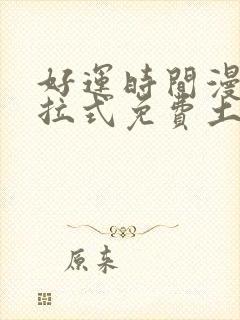 好運時間漫
拉式免費土
原来